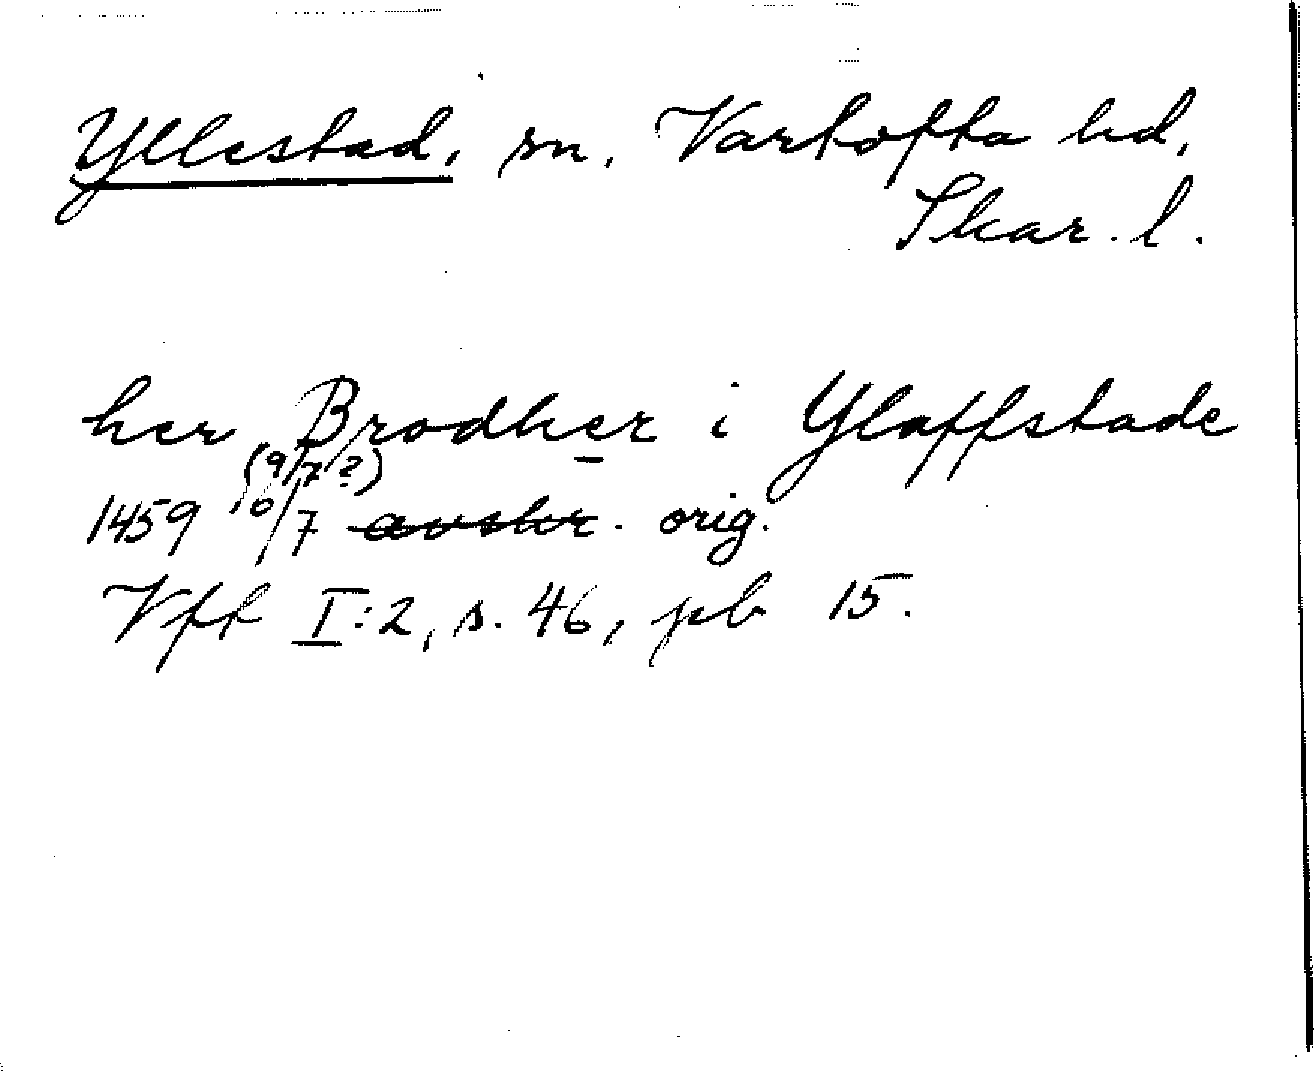 Yllestad, sn, Vartofta hd,
Skar. l.
her Brodher i Ylaffstade
(9/7?)
1459 10/7 avskr. orig.
Vff I:2, s. 46, pb 15.